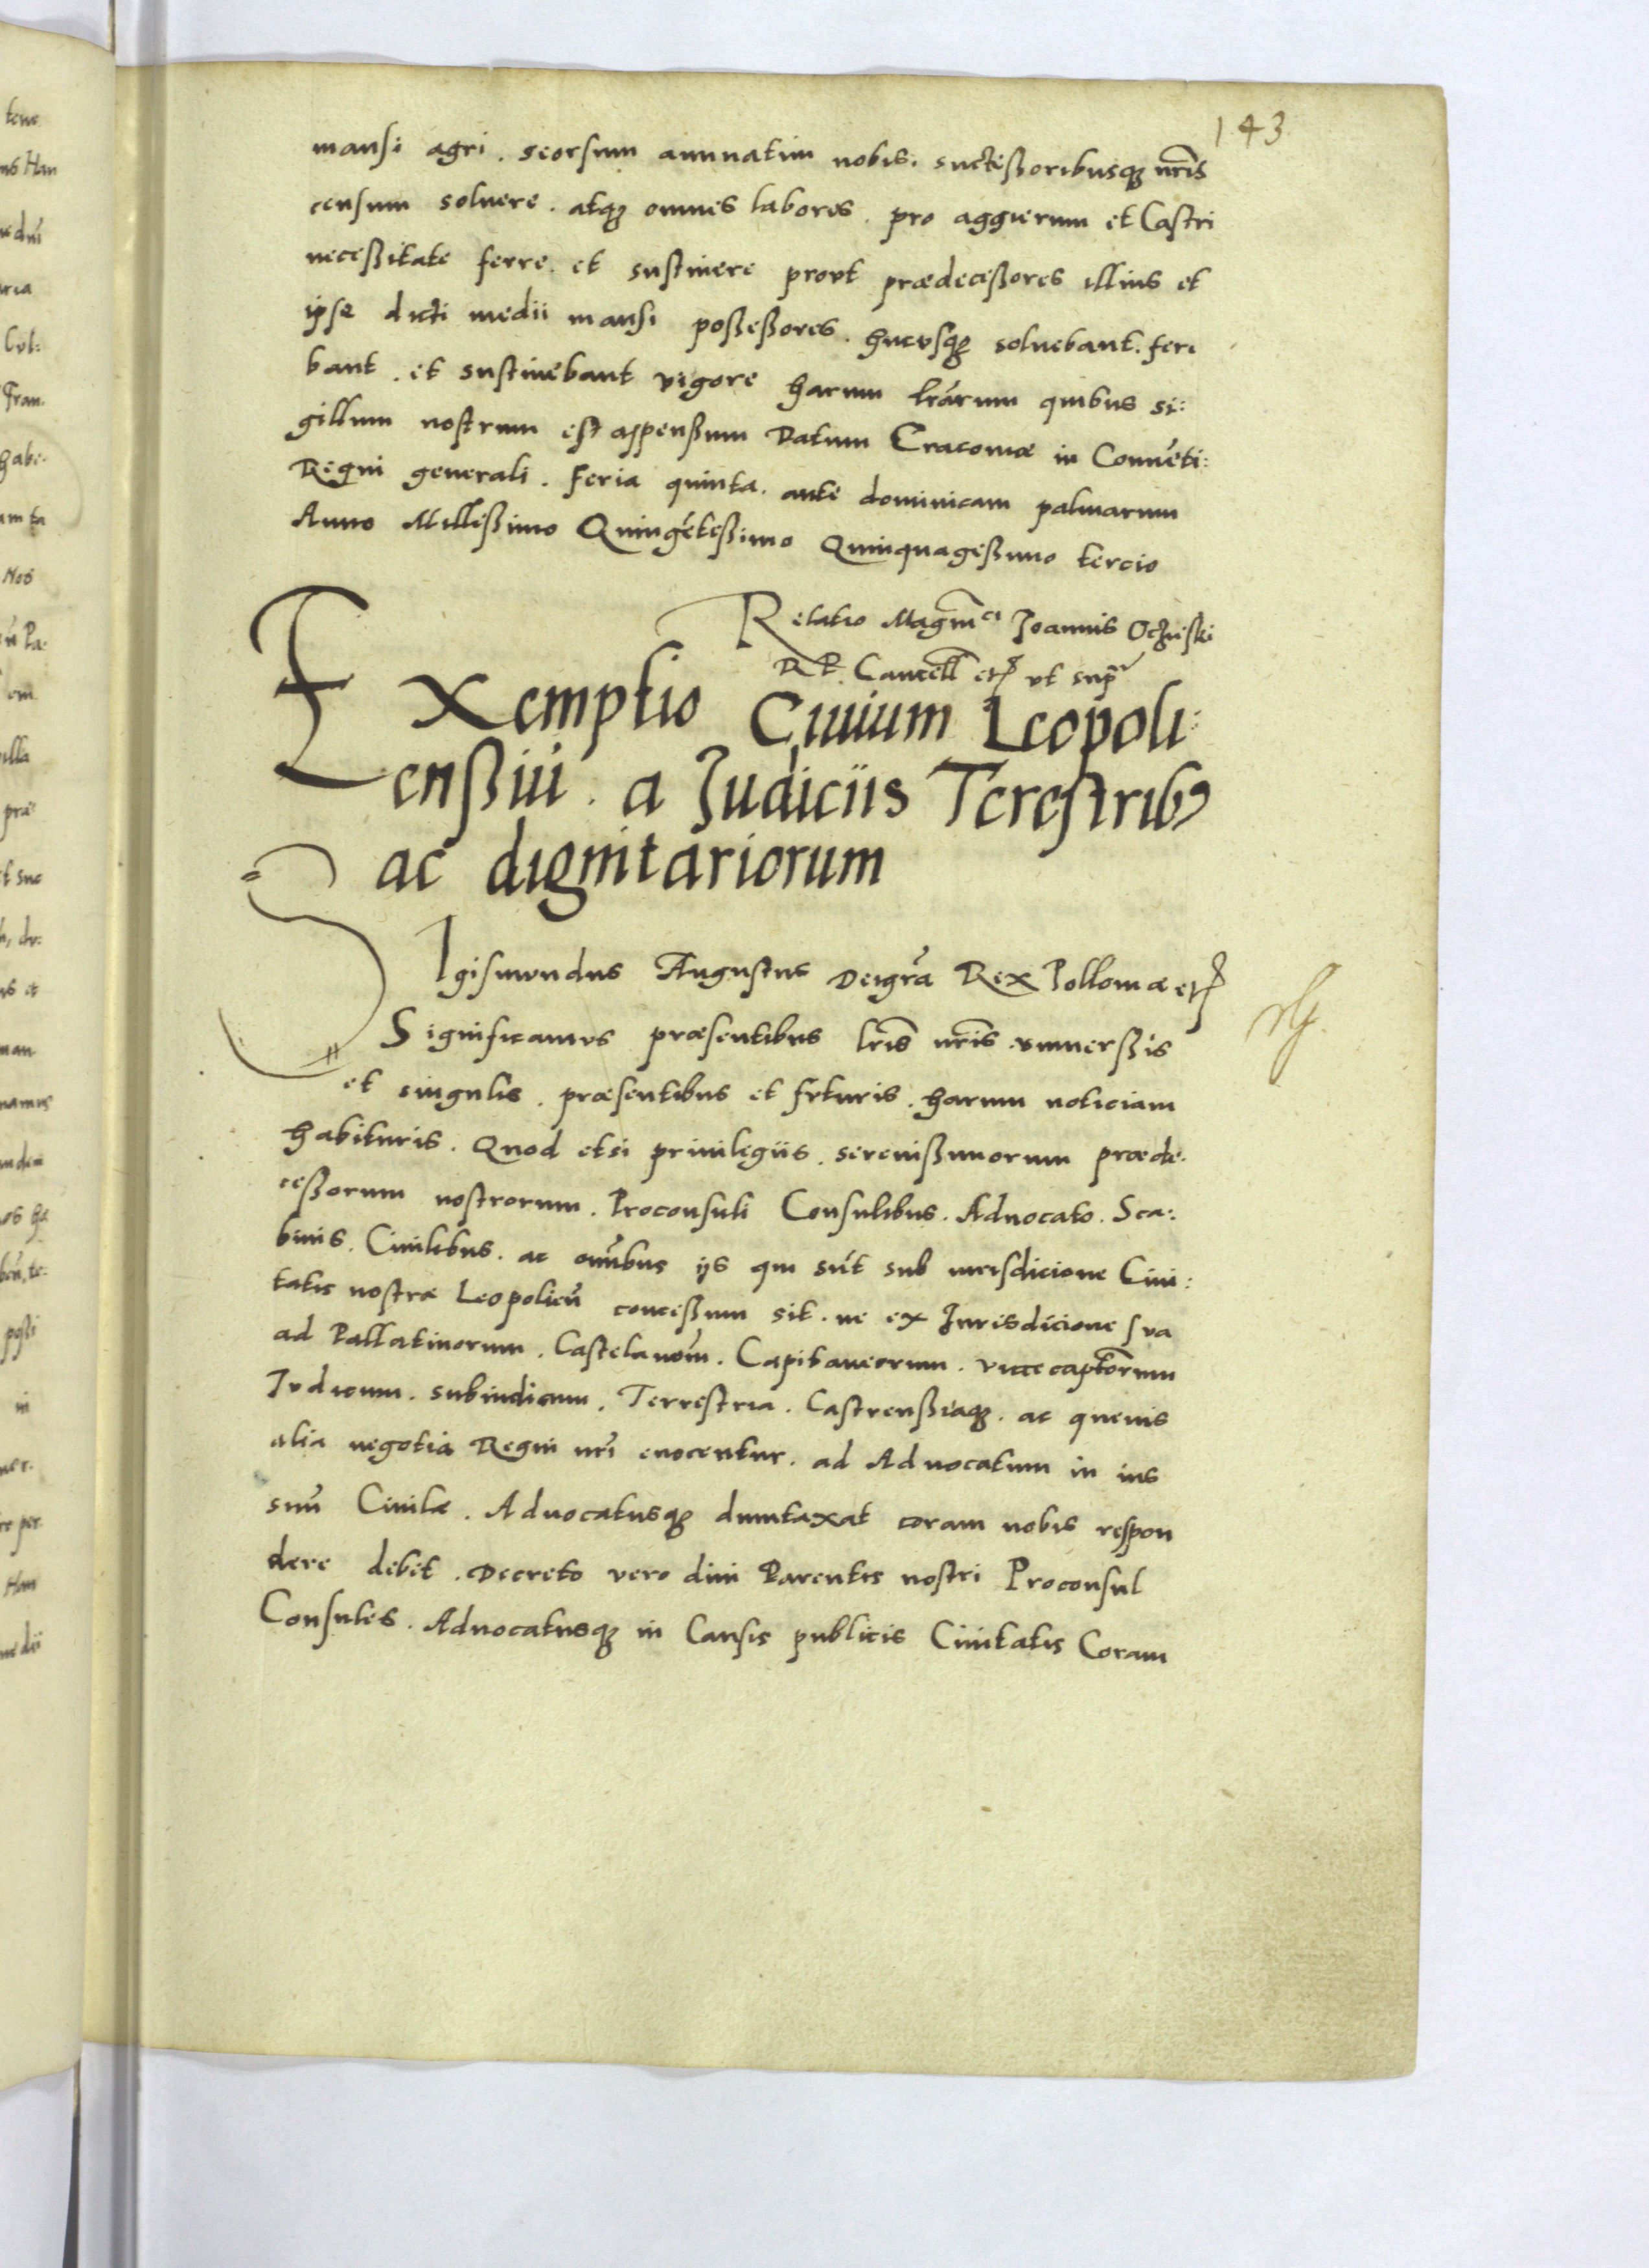 143
mansi agri . seorsum annuatim nobis . successoribusq₃ nr̃is
censum soluere . atq₃ omnes labores . pro aggerum et Castri
necessitate ferre . et sustinere prout prædecessores illius et
ipse dicti medii mansi possessores . hucusq₃ soluebant . fere
bant . et sustinebant vigore harum lr̃arum quibus si:
gillum nostrum est appensum Datum Cracoviæ in Conuẽti:
Regni generali . Feria quinta . ante dominicam palmarum
Anno Millessimo Quingẽtessimo Quinquagessimo tercio
Relatio Magnĩci Joannis Oczieski
R P. Cancell̃ etc̃ vt supr̃
Exemptio Ciuium Leopoli:
enssiũ . a Judiciis Terestrib9
ac dignitariorum
SIgismundus Augustus Dei gr̃a Rex Polloniæ etc̃
Significamus præsentibus lr̃is nr̃is vniuerssis
et singulis . præsentibus et futuris . harum noticiam
habituris . Quod etsi priuilegiis . serenissimorum præde-
cessorum nostrorum . Proconsuli Consulibus . Aduocato . Sca:
binis . Ciuilibus . ac oĩnibus ijs qui sũt sub iurisdicione Ciui:
tatis nostræ Leopolieñ concessum sit . ne ex Jurisdicione sua
ad Pallatinorum . Castelanor̃m . Capitaneorum . vicecaptõrum
Judicum . subiudicum . Terrestria . Castrenssiaq₃ . ac queuis
alia negotia Regni nr̃i euocentur . ad Aduocatum in ius
suũ Ciuile . Aduocatusq₃ dumtaxat coram nobis respon
dere debet . Decreto vero diui Parentis nostri Proconsul
Consules . Aduocatusq₃ in Causis publicis Ciuitatis Coram